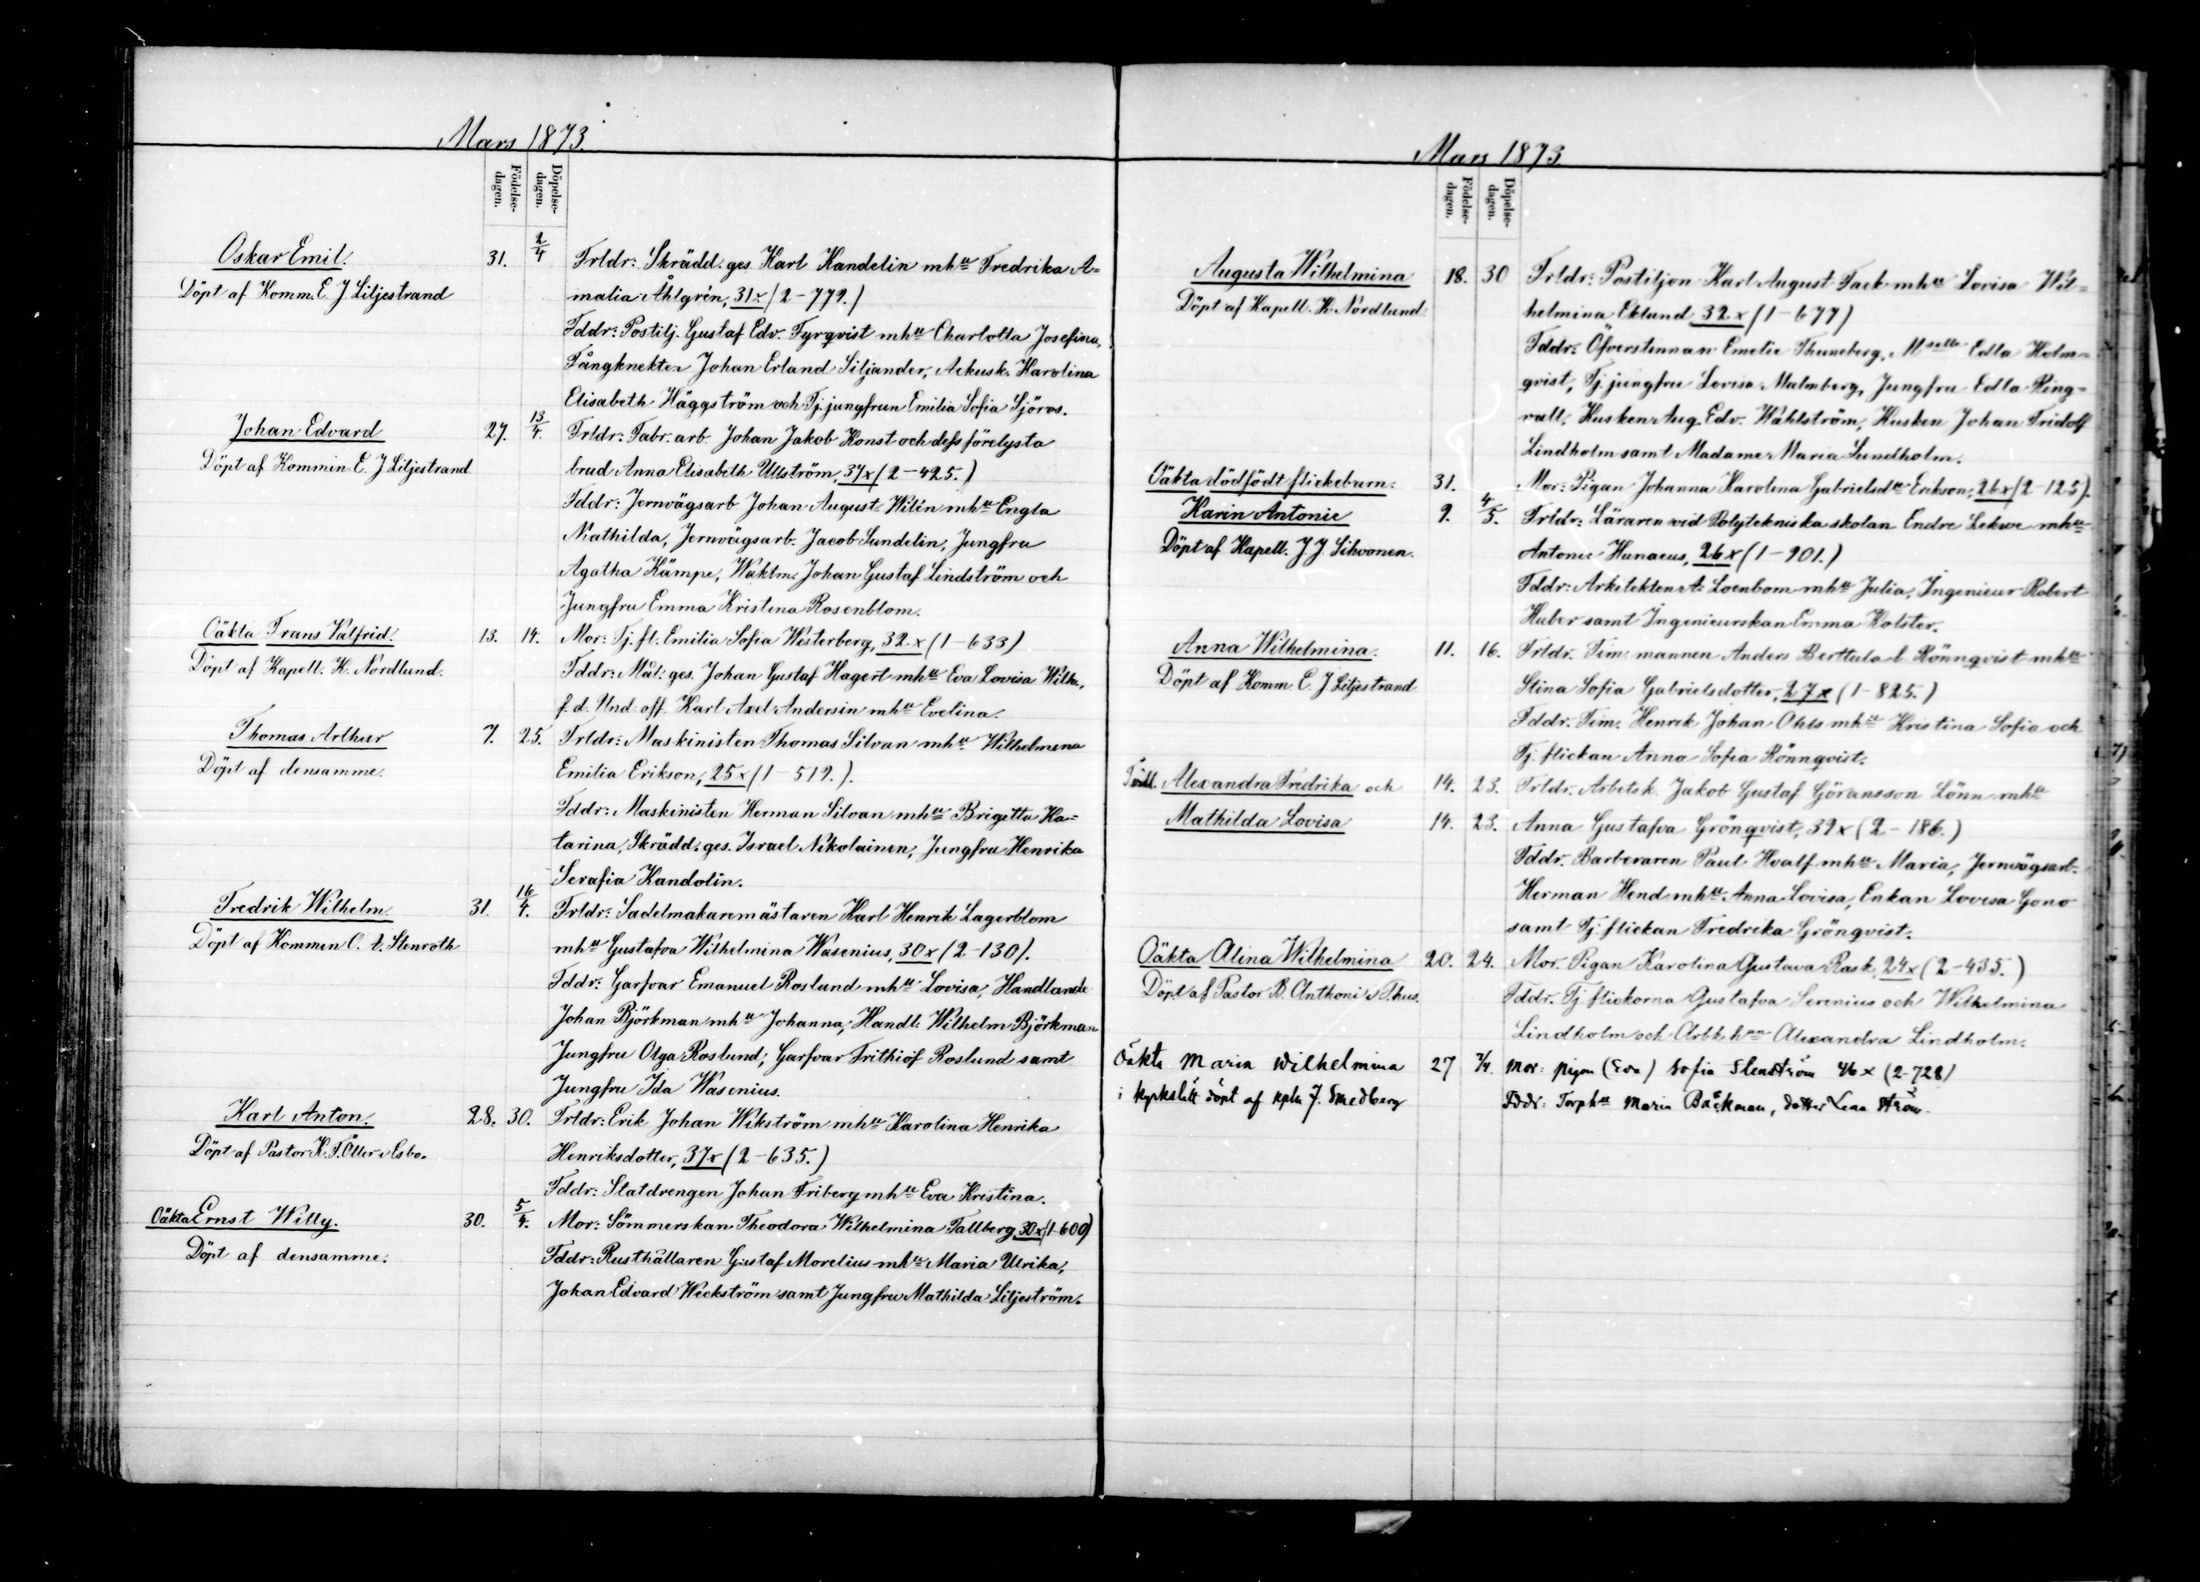 Mars 1873.
Födelse-
dagen.
Döpelse-
dagen.
Oskar Emil. 31. 2/4 Frldr: Skrädd. ges. Karl Kandelin mhu Fredrika A=
Döpt af Komm. C. J Liljestrand malia Ahlgrén, 31x (2-779.)
Fddr: Postilj. Gustaf Edv. Fyrqvist mhu Charlotta Josefina,
Fångknekten Johan Erland Siljander, Ackusk. Karolina
Elisabeth Häggström och Tj. jungfrun Emilia Sofia Sjöros.
Johan Edvard 27. 13/4. Frldr: Fabr. arb. Johan Jakob Konst och dess förelysta
Döpt af Kommin C. J Liljestrand brud Anna Elisabeth Ullström, 37x (2-425.)
Fddr: Jernvägsarb Johan August Wilén mhu Engla
Mathilda, Jernvägsarb. Jacob Sundelin, Jungfru
Agatha Kämpe, Waktm. Johan Gustaf Lindström och
Jungfru Emma Kristina Rosenblom.
Oäkta Frans Valfrid. 13. 14. Mor: Tj. fl. Emilia Sofia Westerberg, 32x (1-633)
Döpt af Kapell. K. Nordlund. Fddr: Mål: ges. Johan Gustaf Hagert mhu Eva Lovisa Wilh.,
f. d. Und: off. Karl Axel Andersin mhu Evelina.
Thomas Arthur 7. 25. Frldr: Maskinisten Thomas Silvan mhu Wilhelmina
Döpt af densamme. Emilia Erikson, 25x (1-519.).
Fddr: Maskinisten Herman Silvan mhu Brigitta Ka=
tarina, Skrädd. ges. Israel Nikolainen, Jungfru Henrika
Serafia Kandolin.
Fredrik Wilhelm. 31. 16/4. Frldr: Sadelmakaremästaren Karl Henrik Lagerblom
Döpt af Kommin C. A. Stenroth mhu Gustafva Wilhelmina Wasenius, 30x (2-130).
Fddr: Garfvar Emanuel Roslund mhu Lovisa, Handlande
Johan Björkman mhu Johanna, Handl: Wilhelm Björkman
Jungfru Olga Roslund, Garfvar Frithiof Roslund samt
Jungfru Ida Wasenius.
Karl Anton. 28. 30. Frldr: Erik Johan Wikström mhu Karolina Henrika
Döpt af Pastor K. F. Öller i Esbo. Henriksdotter, 37x (2-635.)
Fddr: Statdrengen Johan Friberg mhu Eva Kristina.
Oäkta Ernst Willy. 30. 5/4. Mor: Sömmerskan Theodora Wilhelmina Tallberg 30x (1-600)
Döpt af densamme. Fddr: Rusthållaren Gustaf Morelius mhu Maria Ulrika,
Johan Edvard Weckström samt Jungfru Mathilda Liljeström.
Mars 1873.
Födelse-
dagen.
Döpelse-
dagen.
Augusta Wilhelmina 18. 30 Frldr: Postiljon Karl August Tack mhu Lovisa Wil=
Döpt af Kapell. K. Nordlund. helmina Eklund, 32x (1-677)
Fddr: Öfverstinnan Emelie Thuneberg, Mselle Edla Holm=
qvist, Tj. jungfru Lovisa Malmberg, Jungfru Edla Ring=
vall, Kusken Aug. Edv. Wahlström, Kusken Johan Fridolf
Lindholm samt Madame Maria Sundholm.
Oäkta dödfödt flickebarn. 31. Mor: Pigan Johanna Karolina Gabrielsdr Erikson, 26x (2-125).
Karin Antonie 9. 4/5. Frldr: Läraren vid Polytekniska skolan Endre Lekve mhu
Döpt af Kapell. J J Sihvonen. Antonie Hunaeus, 26x (1-901.)
Fddr: Arkitekten A. Loenbom mhu Julia, Ingenieur Robert
Huber samt Ingenieurskan Emma Kolster.
Anna Wilhelmina. 11. 16. Frldr. Tim. mannen Anders Berttula l. Rönnqvist mhu
Döpt af Komm. C. J Liljestrand Stina Sofia Gabrielsdotter, 27x (1-825.)
Fddr. Tim. Henrik Johan Ohls mhu Kristina Sofia och
Tj. flickan Anna Sofia Rönnqvist.
Tvill. Alexandra Fredrika och 14. 23. Frldr. Arbetsk. Jakob Gustaf Göransson Lönn mhu
Mathilda Lovisa 14. 23. Anna Gustafva Grönqvist, 39x (2-186.)
Fddr. Barberaren Paul Hvalf mhu Maria, Jernvägsarb.
Herman Hend mhu Anna Lovisa, Enkan Lovisa Gono
samt Tj. flickan Fredrika Grönqvist.
Oäkta Alina Wilhelmina 20. 24. Mor. Pigan Karolina Gustava Rask, 24x (2-435.)
Döpt af Pastor B. Anthoni i T.hus. Fddr. Tj. flickorna Gustafva Serenius och Wilhelmina
Lindholm och Arbk. hun Alexandra Lindholm.
Oäkta Maria Wilhelmina 27 7/4. Mor: pigan (Eva) Sofia Stenström 46x (2-728)
i Kyrkslätt döpt af kpln J. Smedberg Fddr: Torphu Maria Bäckman, dotter Lena Ström.